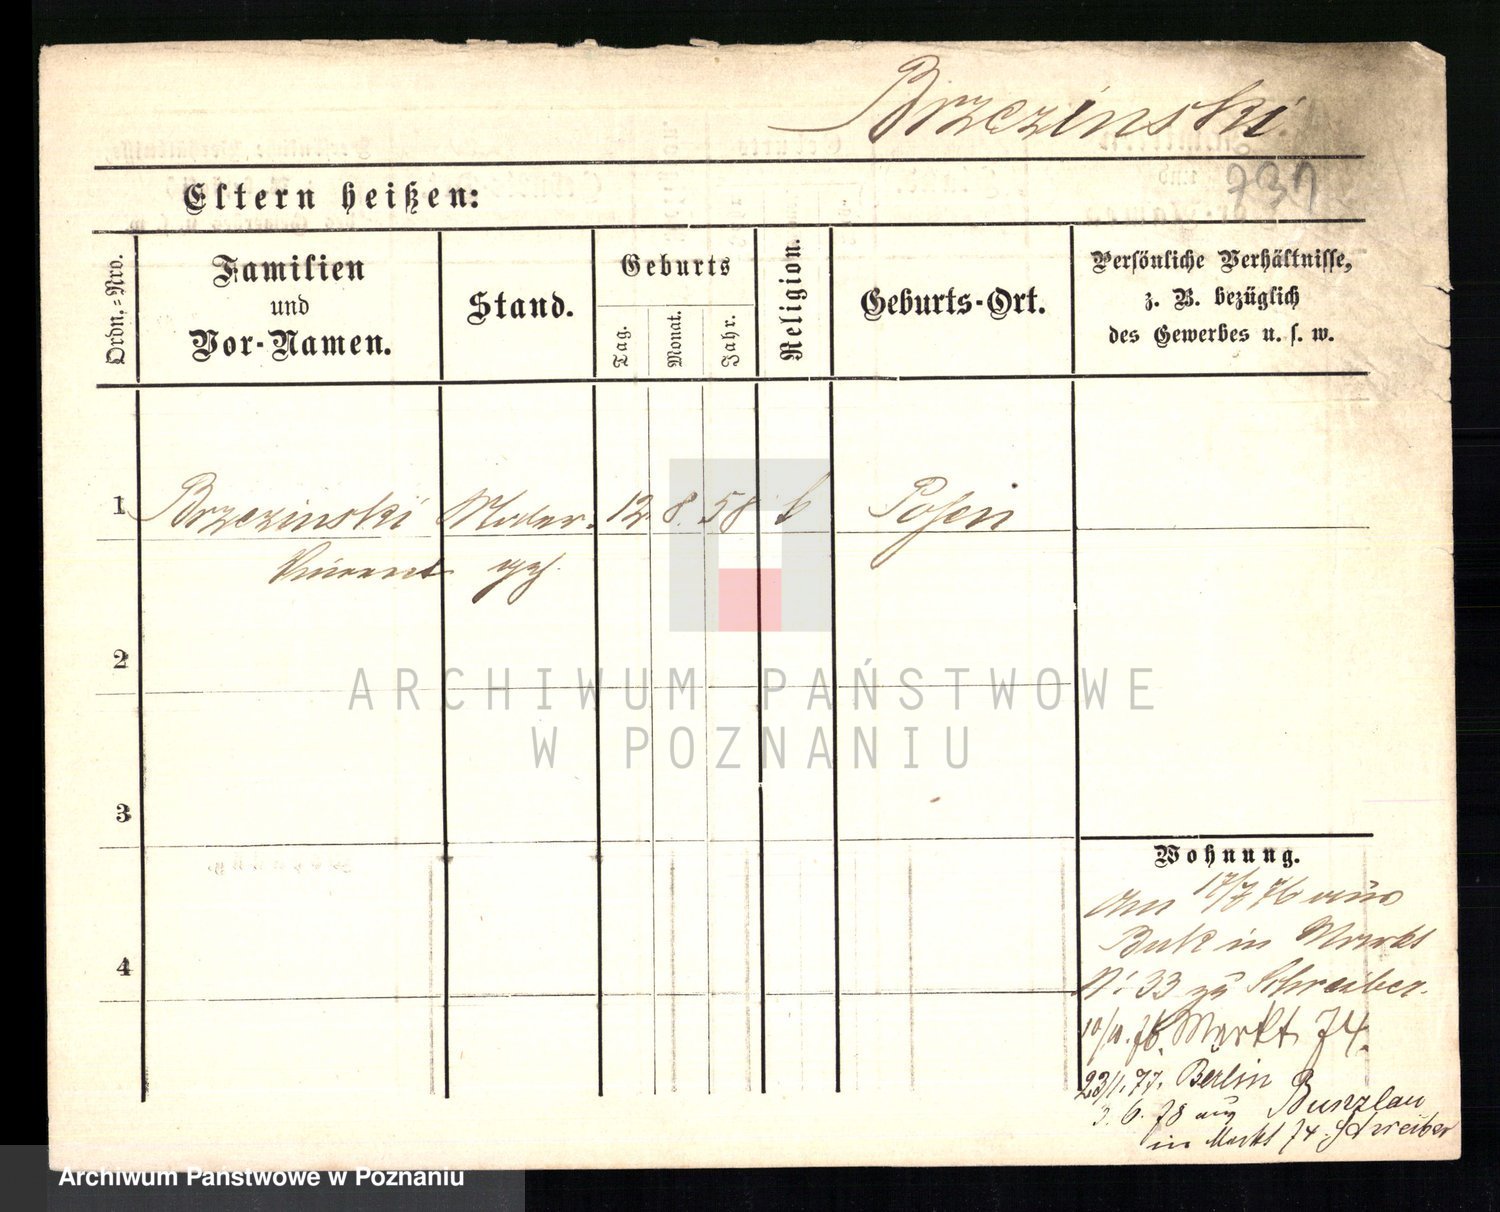 Brzezinski
731
Eltern heißen:
Ordn.=Nro.
Familien
und
Vor-Namen.
Stand.
Geburts
Tag.
Monat.
Jahr.
Religion.
Geburts-Ort.
Persönliche Verhältnisse,
z. B. bezüglich
des Gewerbes u. s. w.
1 Brzezinski Maler 12. 8. 58 k Posen
Vincent
2
3
4
Wohnung.
Am 17/7 76 aus
Buk in Markt
N: 33 zu Schreiber.
10/11. 76. Markt 74.
23/1. 77. Berlin
3. 6. 78 aus Bunzlau
in Markt 74. Schreiber
ARCHIWUM PAŃSTWOWE
W POZNANIU
Archiwum Państwowe w Poznaniu